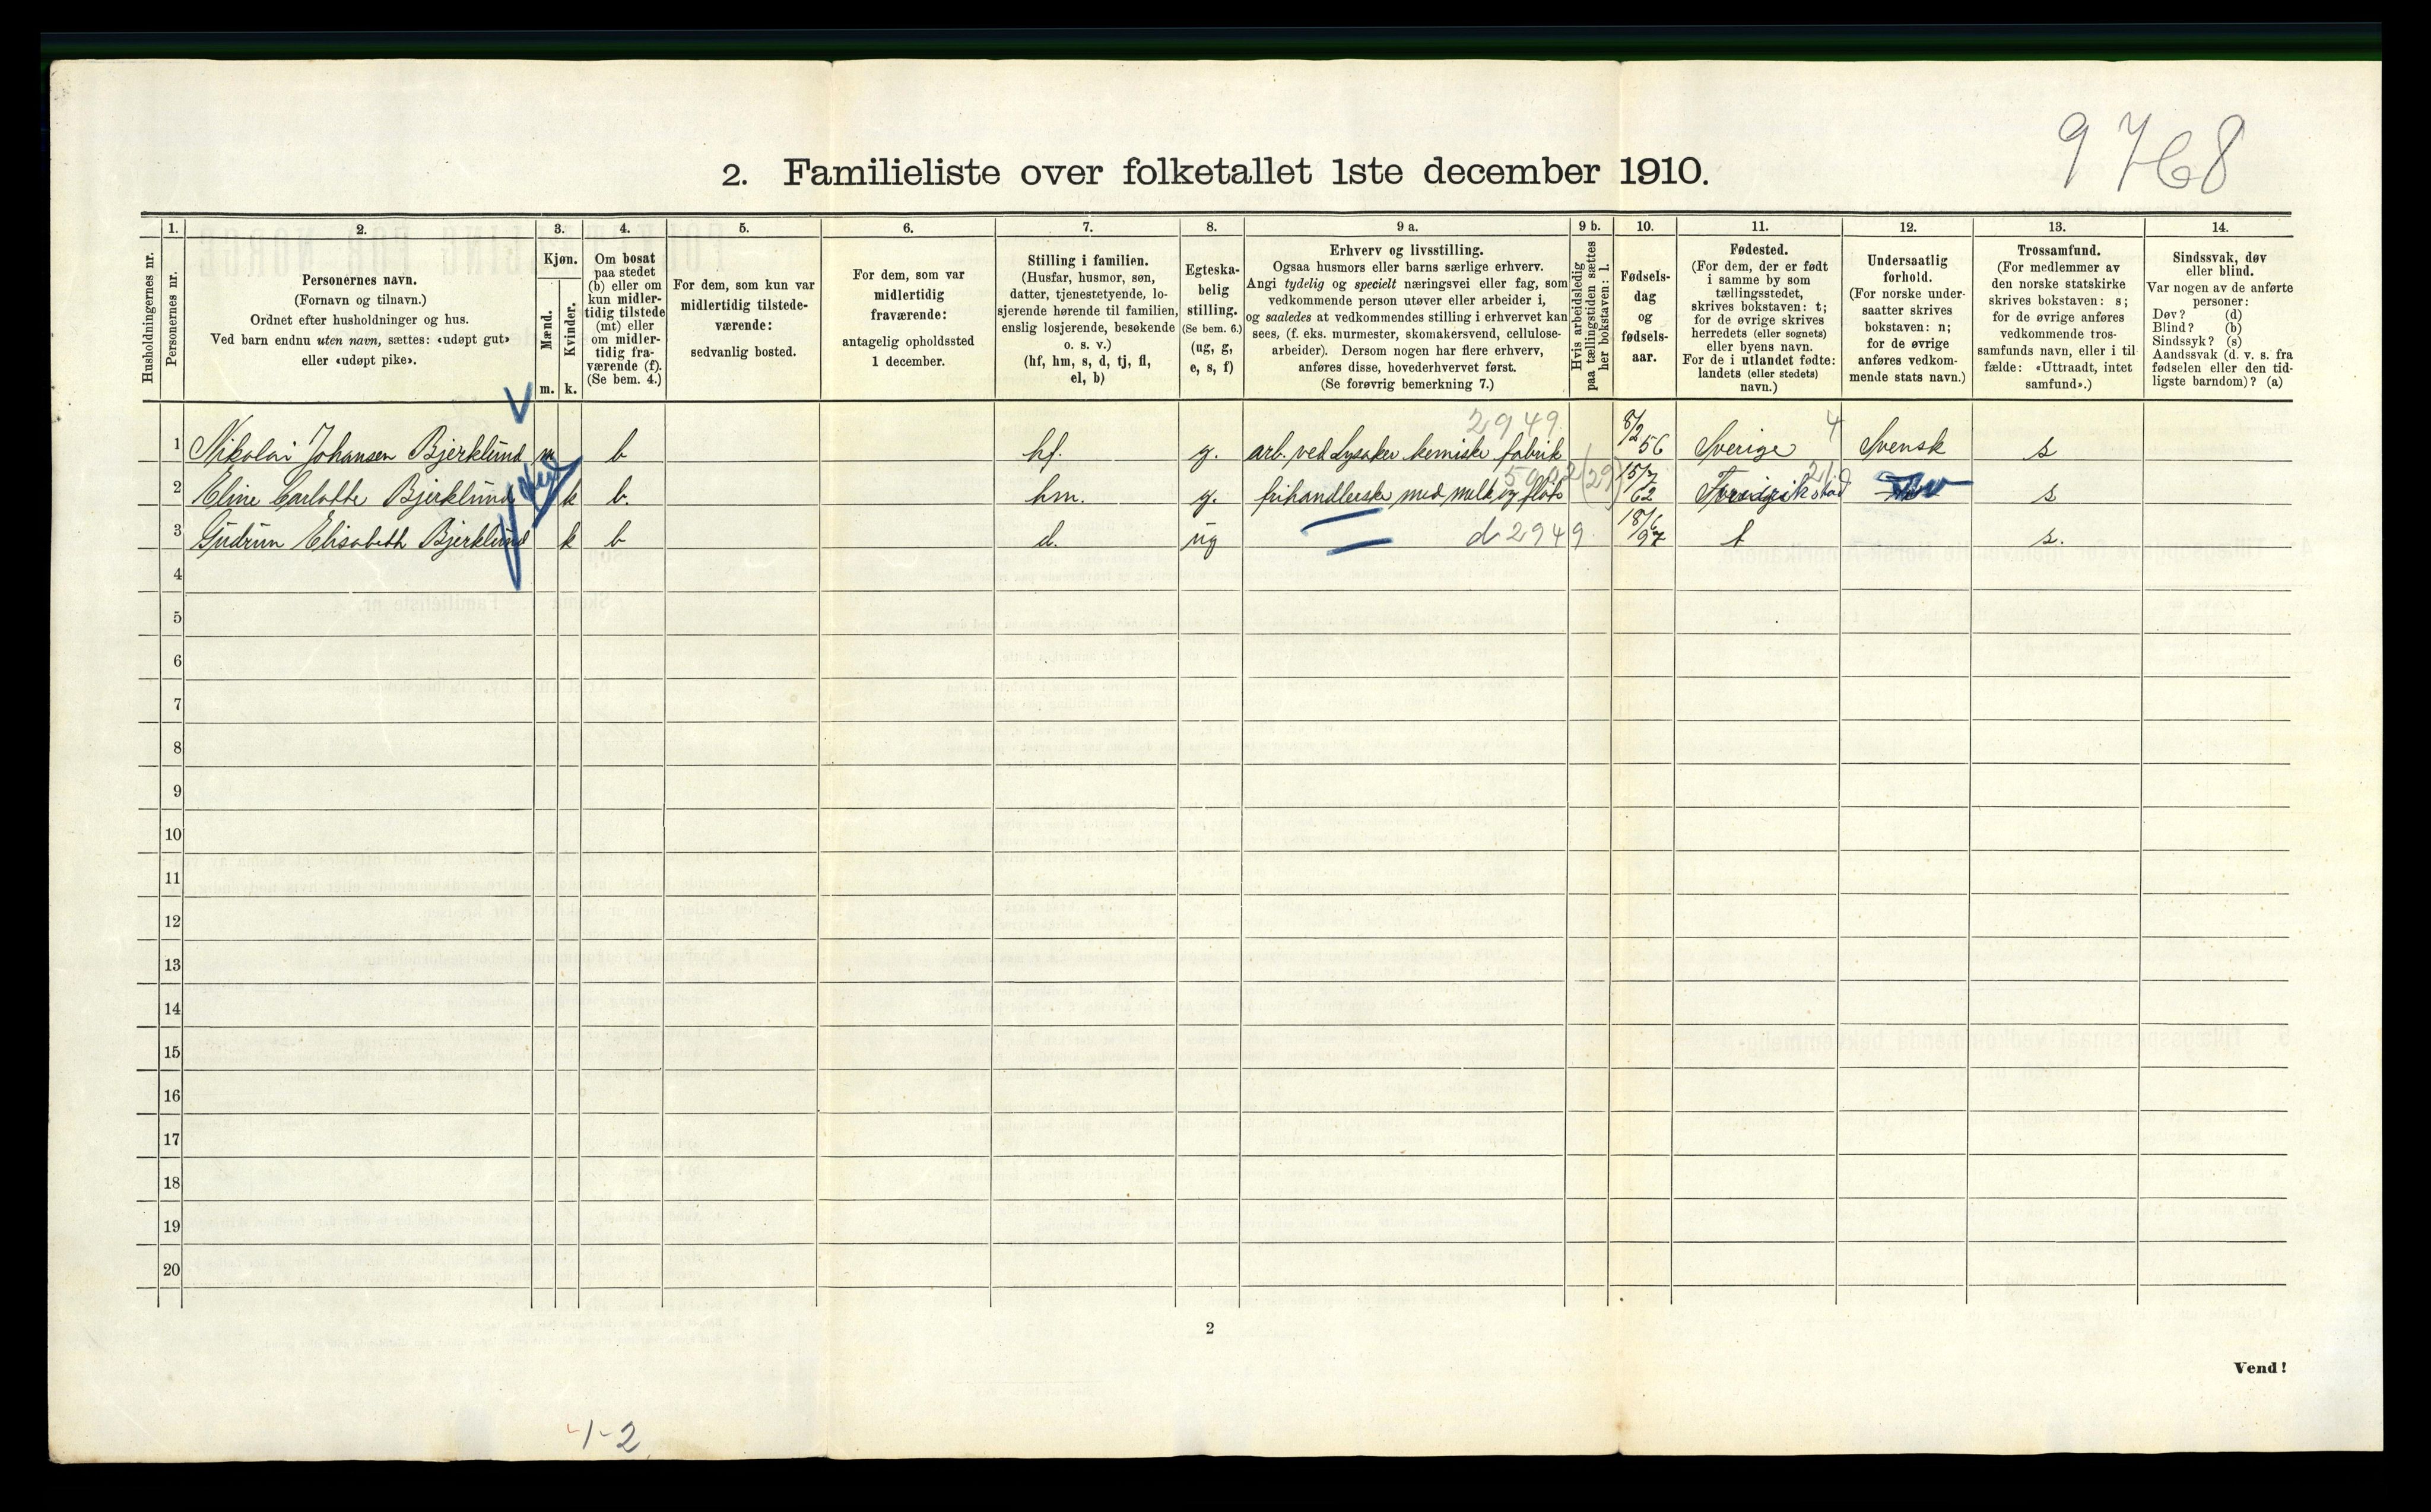 9768
2. Familieliste over folketallet 1ste december 1910.
Husholdningernes nr.
1.
Personernes nr.
2.
Personernes navn.
(Fornavn og tilnavn.)
Ordnet efter husholdninger og hus.
Ved barn endnu uten navn, sættes: «udøpt gut»
eller «udøpt pike».
3.
Kjøn.
Mænd.
Kvinder.
m. k.
4.
Om bosat
paa stedet
(b) eller om
kun midler-
tidig tilstede
(mt) eller
om midler-
tidig fra-
værende (f).
(Se bem. 4.)
5.
For dem, som kun var
midlertidig tilstede-
værende:
sedvanlig bosted.
6.
For dem, som var
midlertidig
fraværende:
antagelig opholdssted
1 december.
7.
Stilling i familien.
(Husfar, husmor, søn,
datter, tjenestetyende, lo-
sjerende hørende til familien,
enslig losjerende, besøkende
o. s. v.)
(hf, hm, s, d, tj, fl,
el, b)
8.
Egteska-
belig
stilling.
(Se bem. 6.)
(ug, g,
e, s, f)
9 a.
Erhverv og livsstilling.
Ogsaa husmors eller barns særlige erhverv.
Angi tydelig og specielt næringsvei eller fag, som
vedkommende person utøver eller arbeider i,
og saaledes at vedkommendes stilling i erhvervet kan
sees, (f. eks. murmester, skomakersvend, cellulose-
arbeider). Dersom nogen har flere erhverv,
anføres disse, hovederhvervet først.
(Se forøvrig bemerkning 7.)
9 b.
Hvis arbeidsledig
paa tællingstiden sættes
her bokstaven: l.
10.
Fødsels-
dag
og
fødsels-
aar.
11.
Fødested.
(For dem, der er født
i samme by som
tællingsstedet,
skrives bokstaven: t;
for de øvrige skrives
herredets (eller sognets)
eller byens navn.
For de i utlandet fødte:
landets (eller stedets)
navn.)
12.
Undersaatlig
forhold.
(For norske under-
saatter skrives
bokstaven: n;
for de øvrige
anføres vedkom-
mende stats navn.)
13.
Trossamfund.
(For medlemmer av
den norske statskirke
skrives bokstaven: s;
for de øvrige anføres
vedkommende tros-
samfunds navn, eller i til-
fælde: «Uttraadt, intet
samfund».)
14.
Sindssvak, døv
eller blind.
Var nogen av de anførte
personer:
Døv? (d)
Blind? (b)
Sindssyk? (s)
Aandssvak (d. v. s. fra
fødselen eller den tid-
ligste barndom)? (a)
2949 4
1 Nikolai Johansen Bjerklund m b hf. g. arb. ved Lysaker kemiske fabrik 8/2 56 Sverige Svensk s
5902 (29) 21
2 Eline Carlotte Bjerklund k b. hm. g. frihandlerske med melk og fløte 15/7 62 Fredrikstad s
3 Gudrun Elisabeth Bjerklund k b d. ug d 2949 18/6 97 t s.
4
5
6
7
8
9
10
11
12
13
14
15
16
17
18
19
20
2
Vend!
1-2